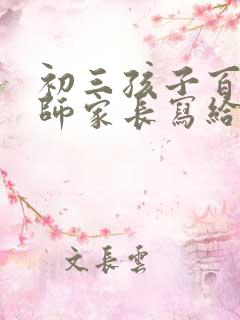 初三孩子百
師家長寫給
文長雲